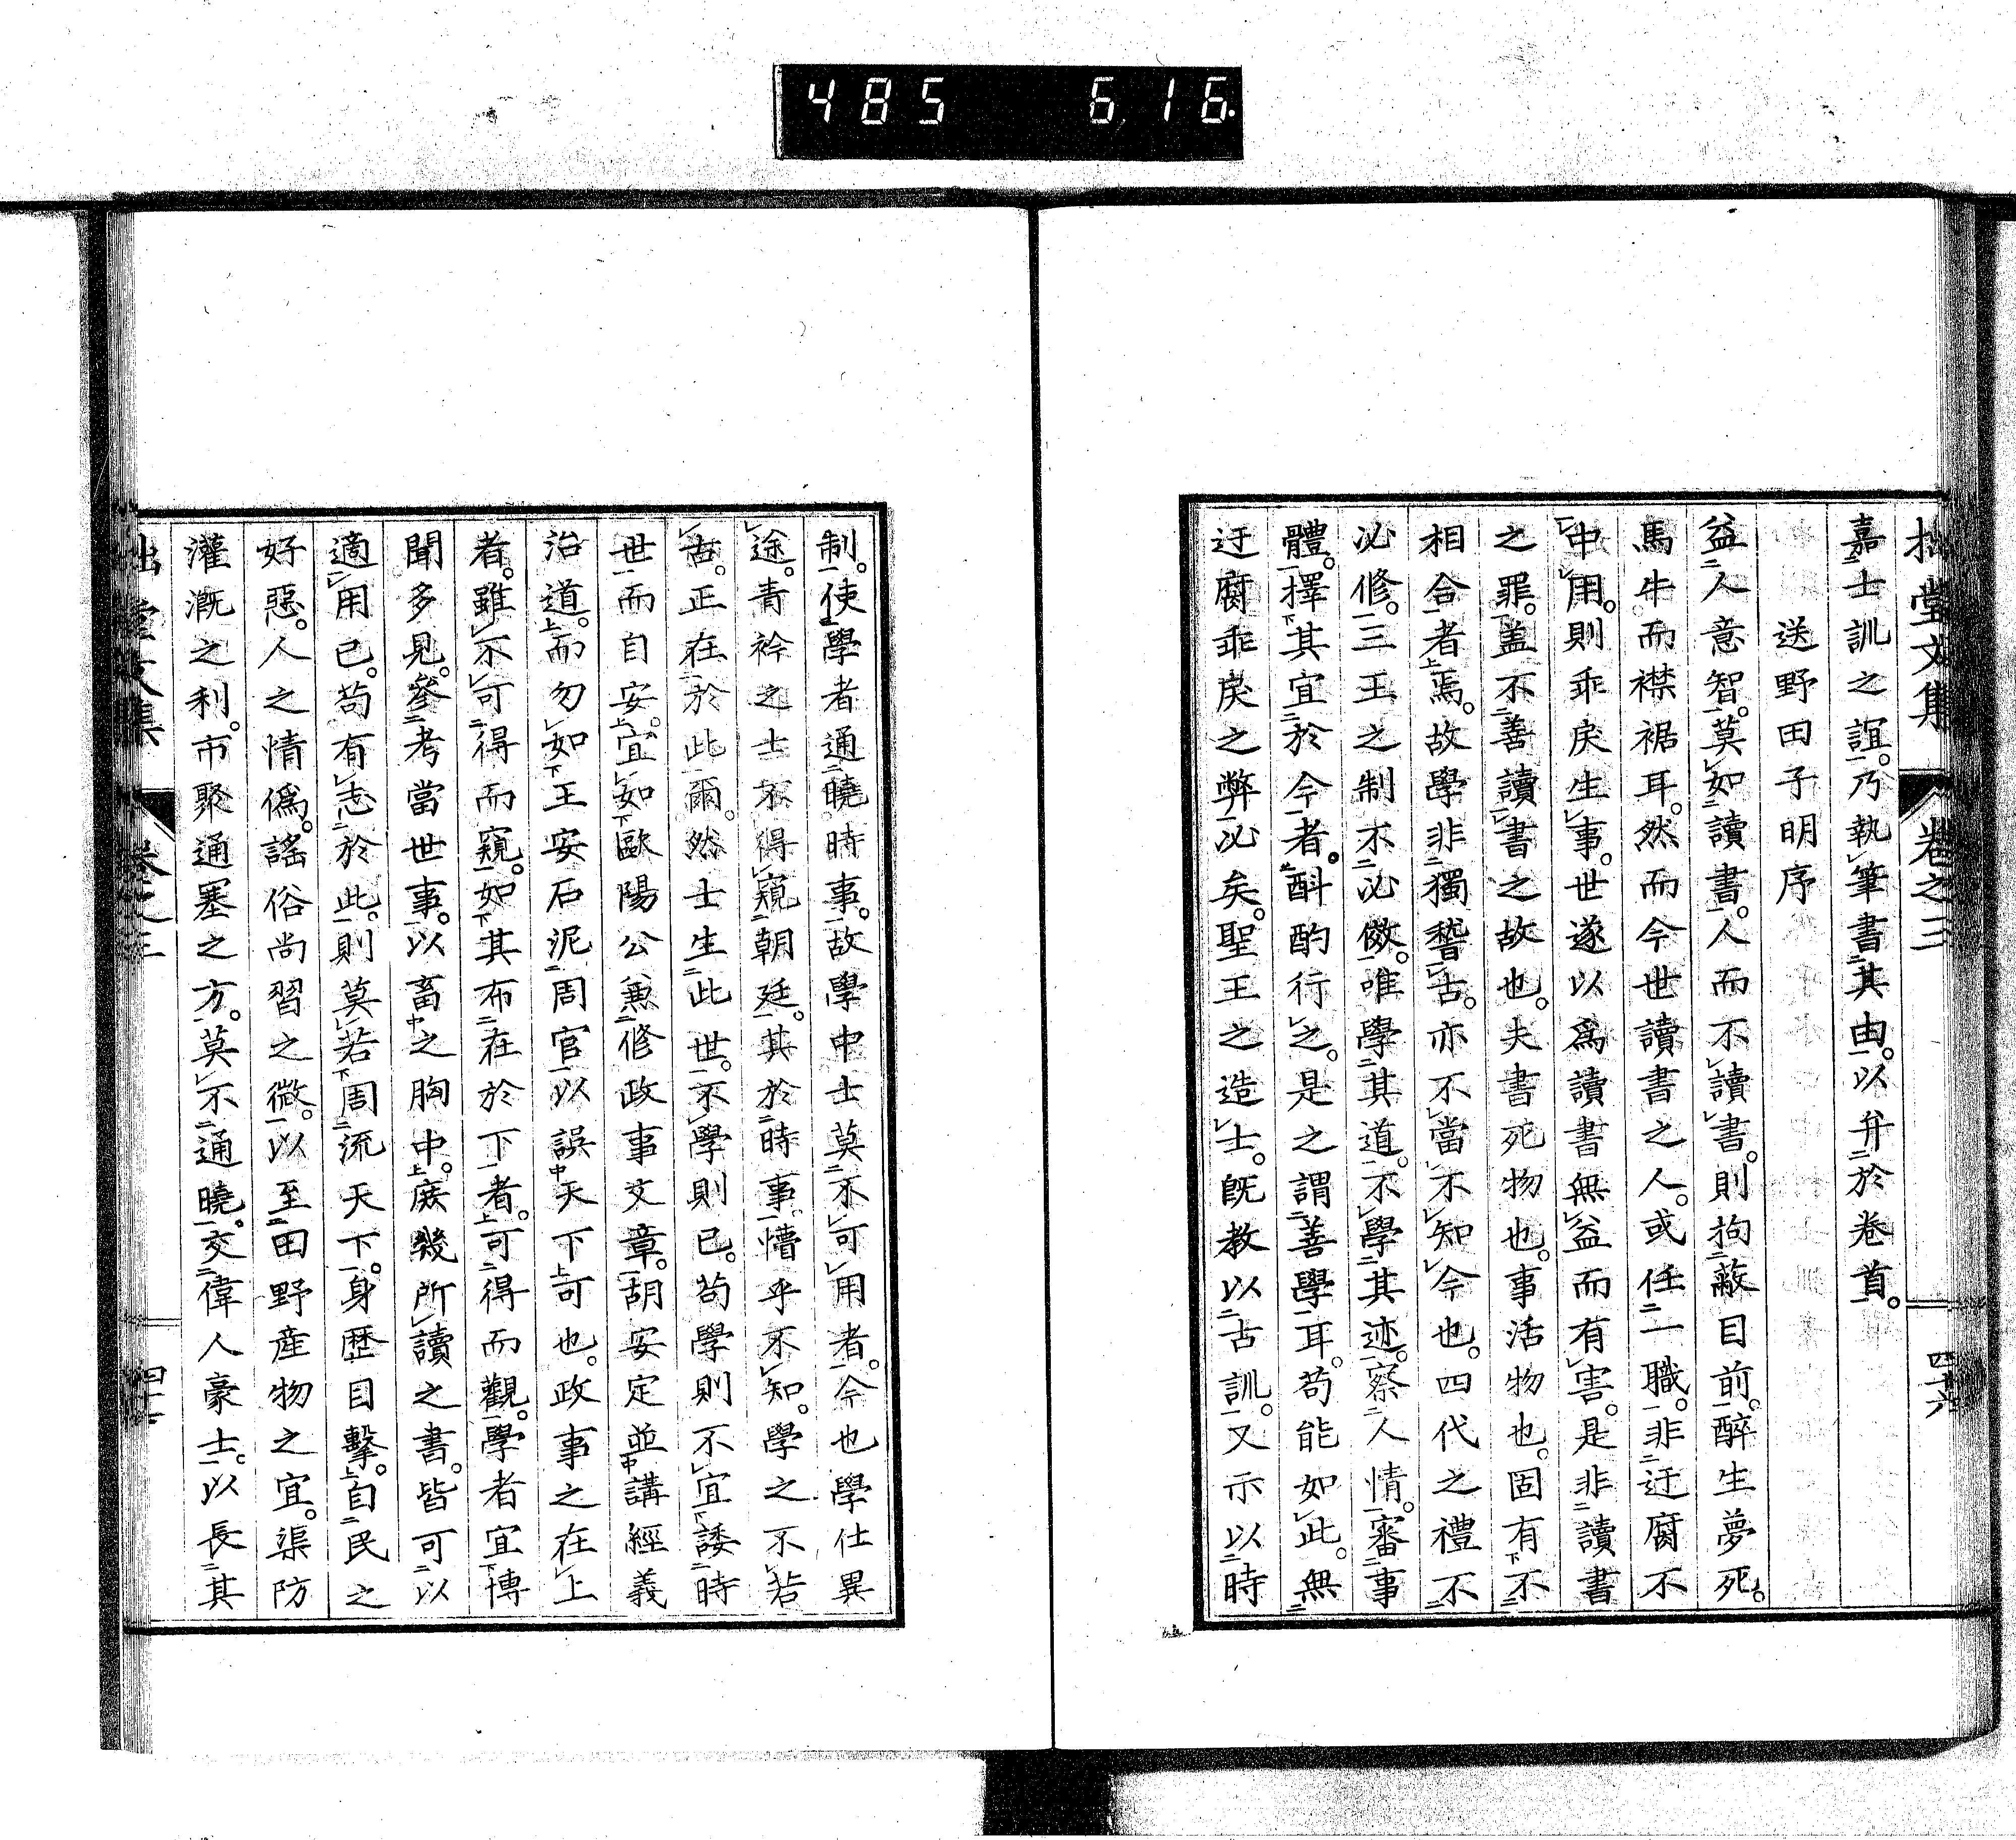 485 616.
拙堂文集 卷之三 四十六
嘉士訓之誼。乃執筆書其由。以弁於卷首。
送野田子明序
益人意智。莫如讀書。人而不讀書。則拘蔽目前。醉生夢死。
馬牛而襟裾耳。然而今世讀書之人。或任一職。非迂腐不
中用。則乖戾生事。世遂以爲讀書無益而有害。是非讀書
之罪。蓋不善讀書之故也。夫書死物也。事活物也。固有不
相合者焉。故學非獨稽古。亦不當不知今也。四代之禮不
必修。三王之制不必倣。唯學其道。不學其迹。察人情。審事
體。擇其宜於今者。斟酌行之。是之謂善學耳。苟能如此。無
迂腐乖戾之弊必矣。聖王之造士。既教以古訓。又示以時
制。使學者通曉時事。故學中士莫不可用者。今也學仕異
途。青衿之士不得窺朝廷。其於時事。懵乎不知。學之不若
古。正在於此爾。然士生此世。不學則已。苟學則不宜諉時
世而自安。宜如歐陽公兼修政事文章。胡安定並講經義
治道。而勿如王安石泥周官以誤天下可也。政事之在上
者。雖不可得而窺。如其布在於下者。可得而觀。學者宜博
聞多見。參考當世事。以畜之胸中。庶幾所讀之書。皆可以
適用已。苟有志於此。則莫若周流天下。身歷目擊。自民之
好惡。人之情僞。謠俗尚習之微。以至田野產物之宜。渠防
灌漑之利。市聚通塞之方。莫不通曉。交偉人豪士。以長其
拙堂文集 卷之三